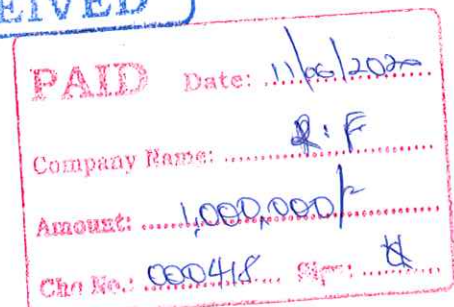 EIVED
PAID Date: 11/06/2020
Company Name: R.F
Amount: 1,000,000/-
Chq No.: 000418 Sign: